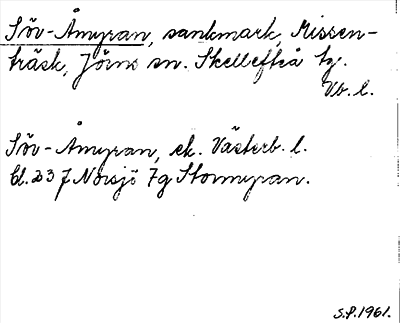 Söv-Åmyran, sankmark, Missen-
träsk, Jörns sn. Skellefteå tg.
Vb. l.
Söv-Åmyran, ek. Västerb. l.
Bl. 23 J Norsjö 7g Stormyran.
S.P. 1961.